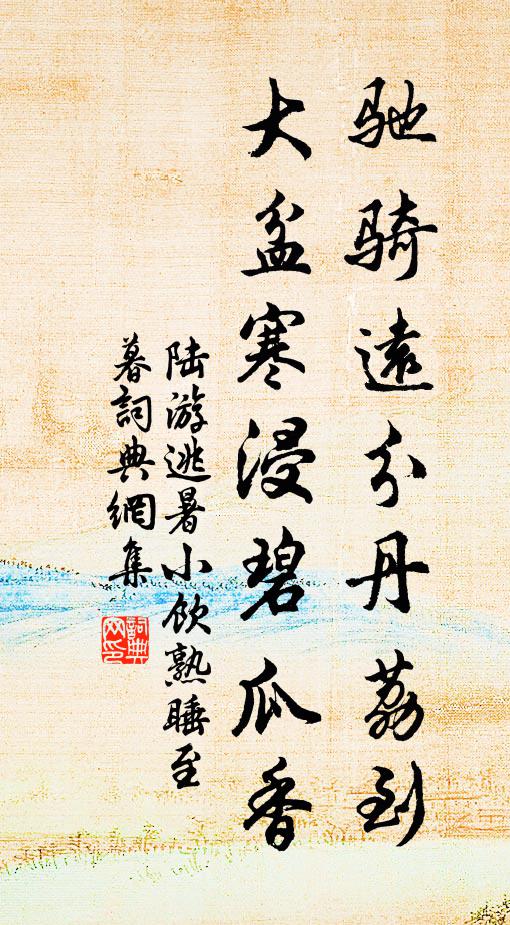 驰骑遠分丹荔到
大盆寒浸碧瓜香
陆游逃暑小飲熟睡至
暮詞典網集
詞典
网印